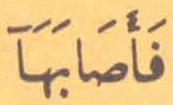 فَأَصَابَهَآ